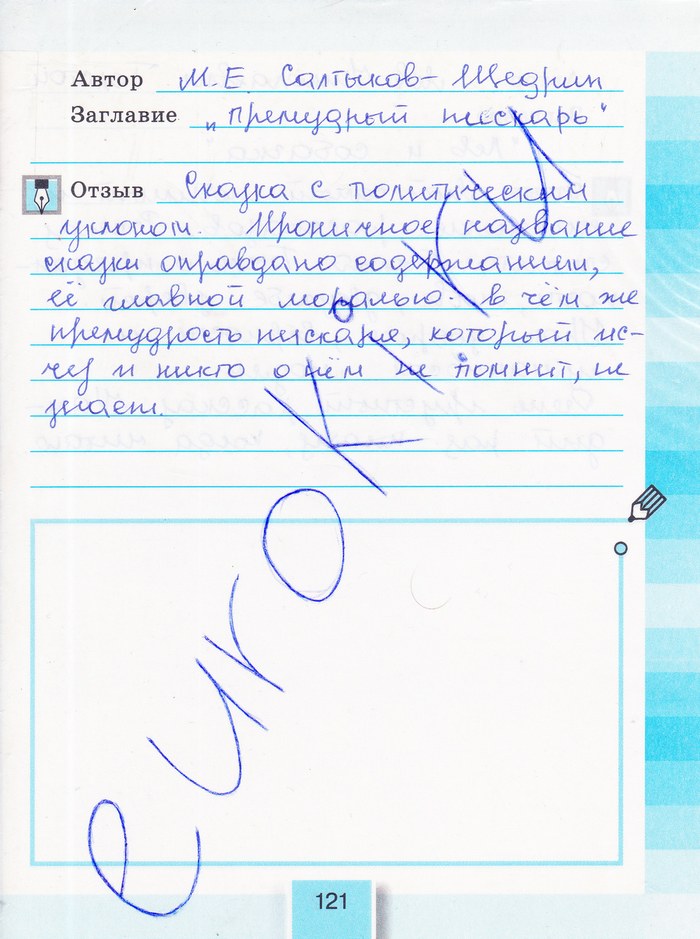 Автор М.Е. Салтыков-Щедрин
Заглавие „Премудрый пискарь"
Отзыв Сказка с политическим
уклоном. Ироничное название
сказки оправдано содержанием,
её главной моралью: в чём же
премудрость пискаря, который ис-
чез и никто о нём не помнит, не
знает.
euroki
121